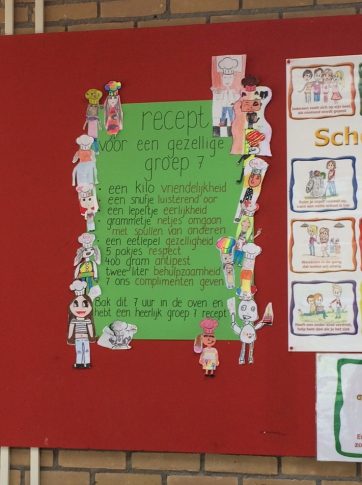 recept
voor een gezellige
groep 7
- een kilo vriendelijkheid
- een snufje luisterend oor
- een lepeltje eerlijkheid
- grammetje netjes omgaan
met spullen van anderen
- een eetlepel gezelligheid
- 5 pakjes respect
- 400 gram antipest
- twee liter behulpzaamheid
- 7 ons complimenten geven
Bak dit 7 uur in de oven en
hebt een heerlijk groep 7 recept
Sch